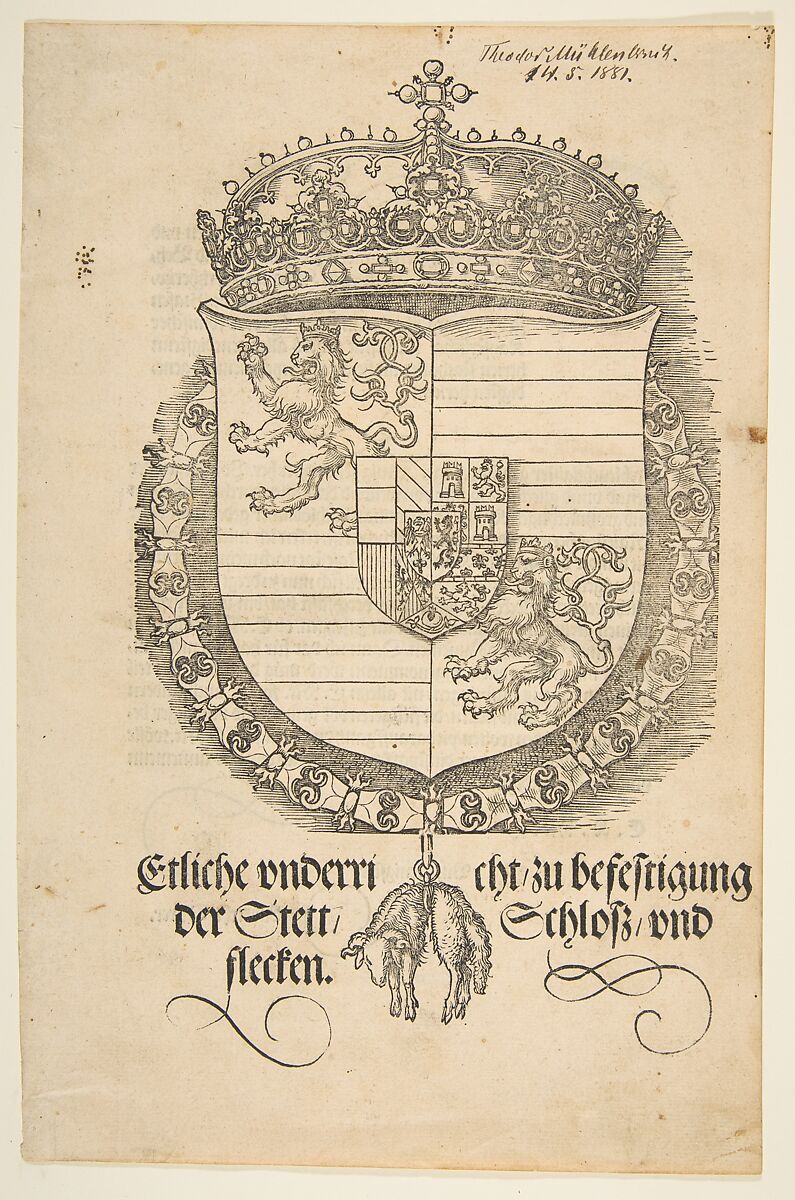 Theodor Mühlenbruch.
14. 5. 1881.
Etliche vnderri cht/ zu befestigung
der Stett/ Schloß/ vnd
flecken.